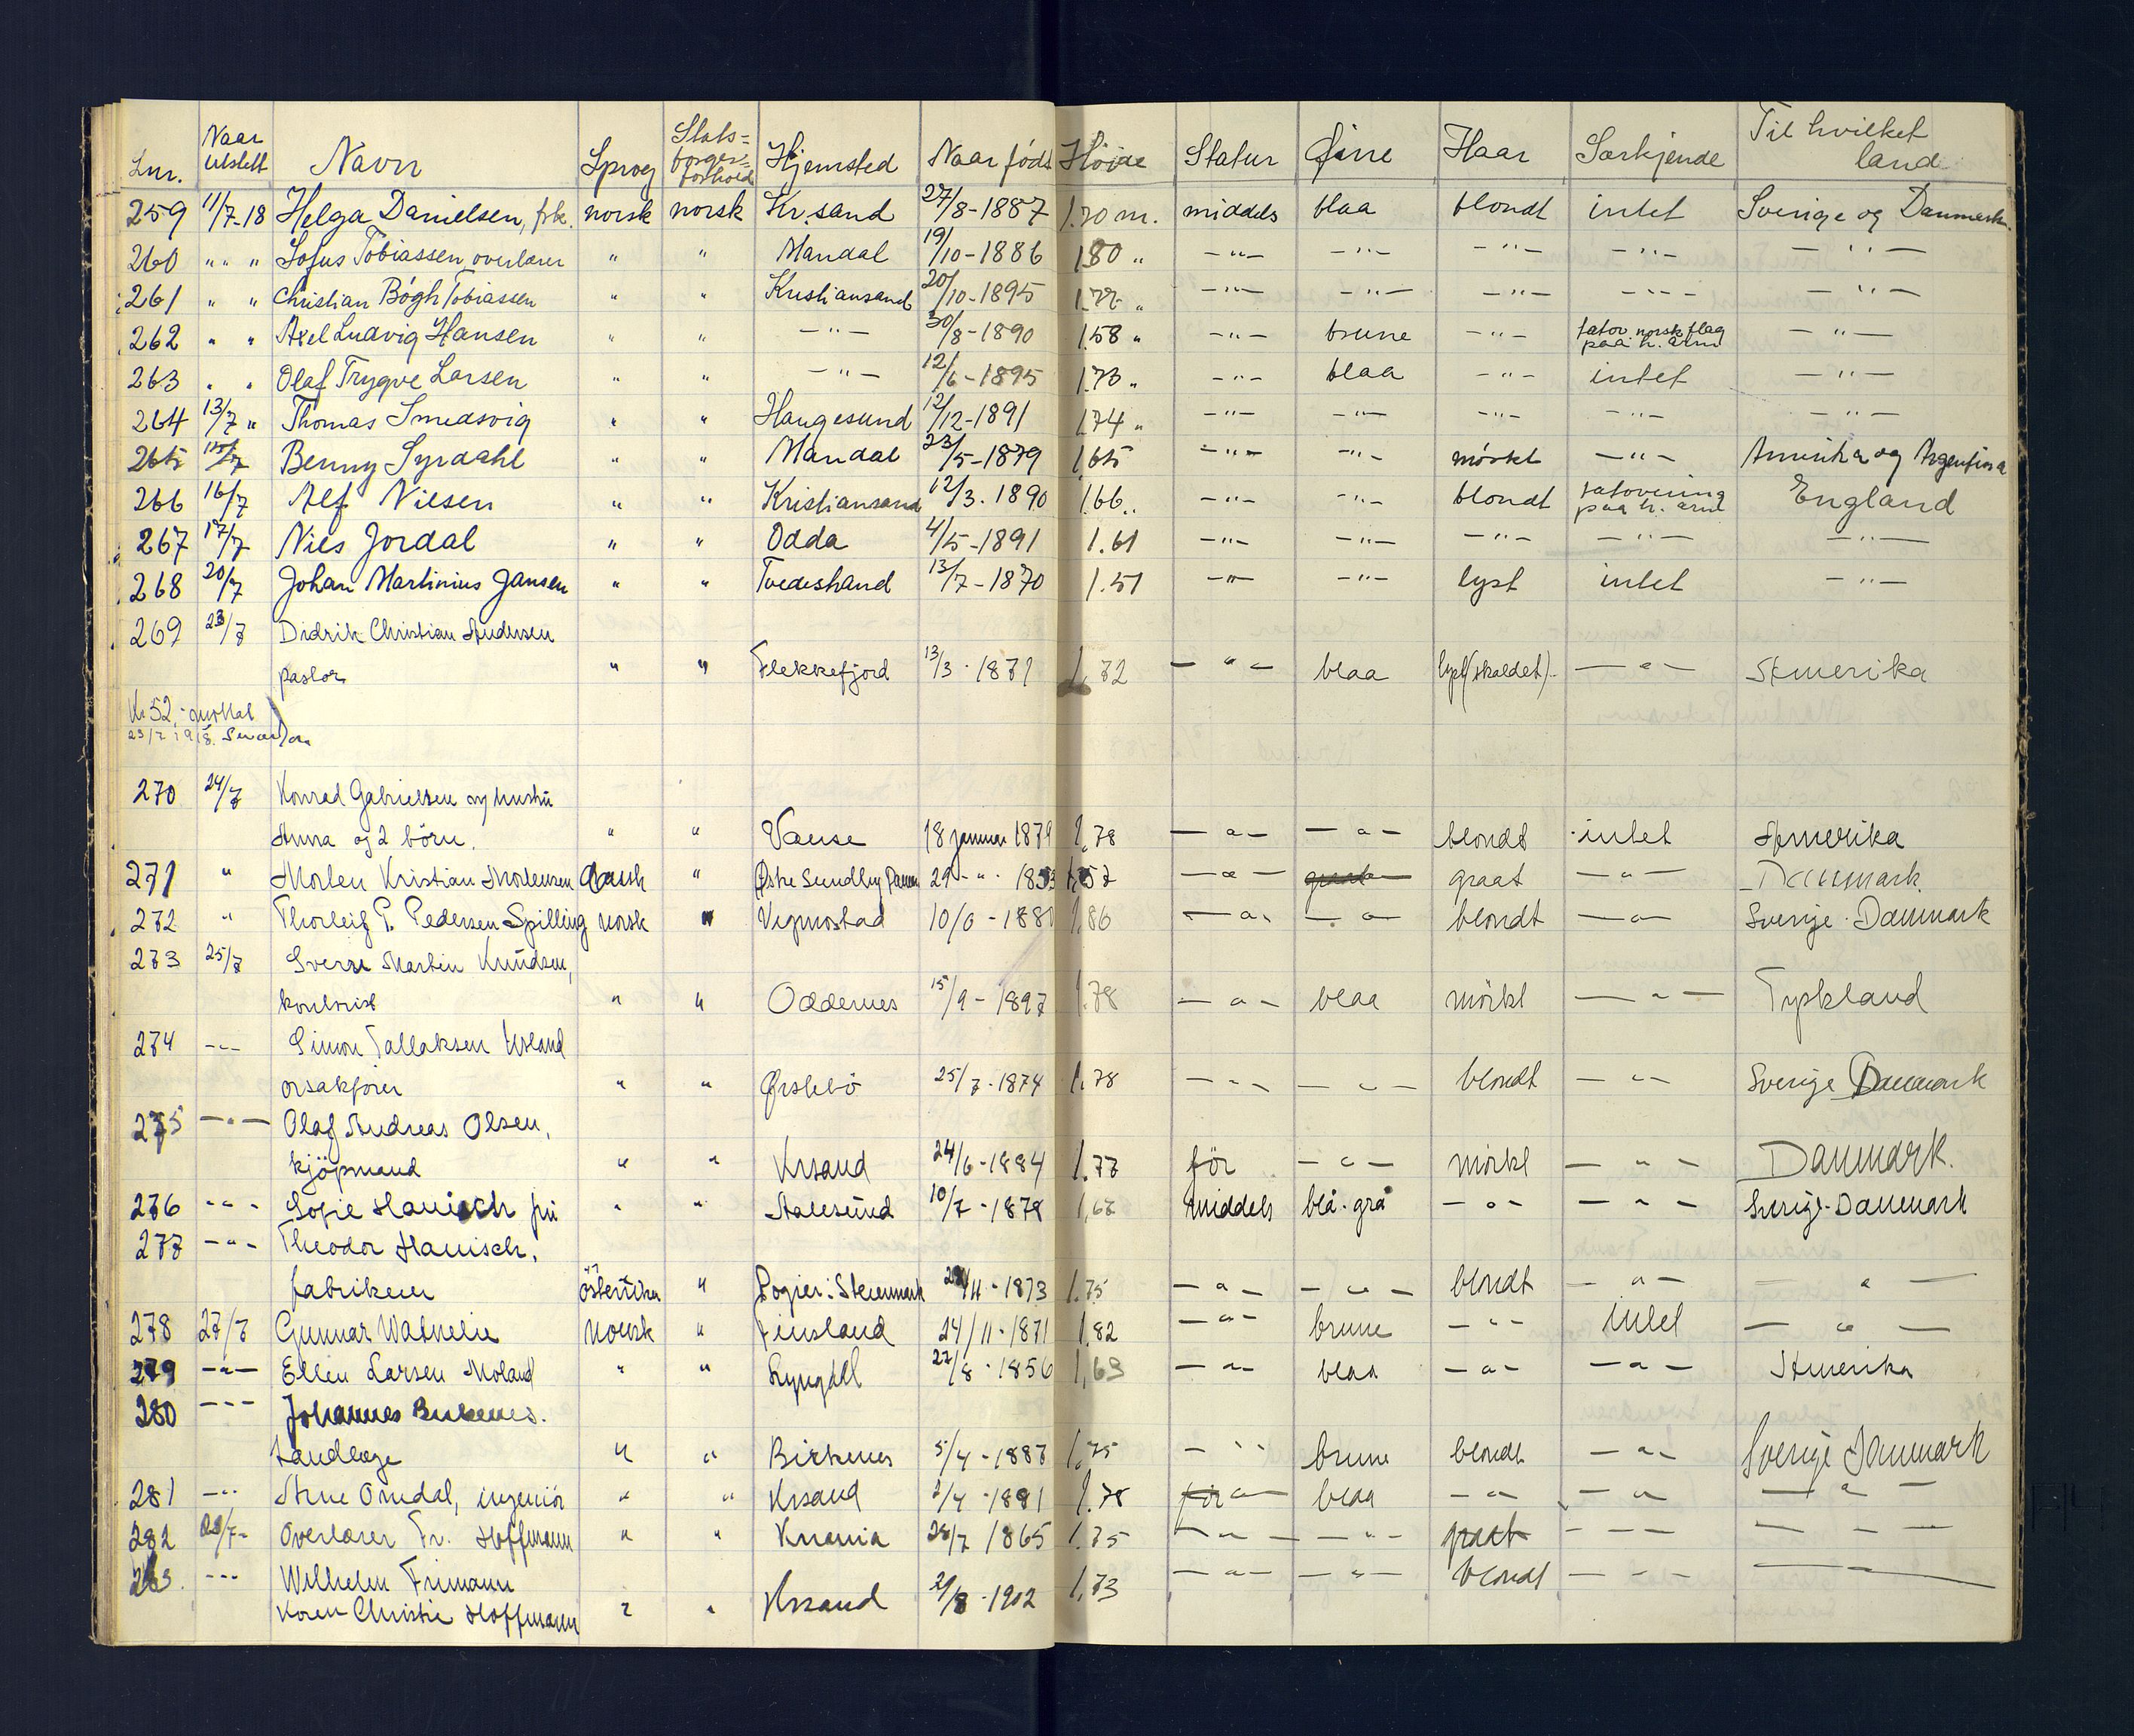 Lnr. Naar Utstett Navn Sprog Stats=borger=forhold Hjemsted Naar født Høide Statur Øine Haar Særkjende Til hvilket land
259 11/7-18 Helga Danielsen, frk. norsk norsk Kr.sand 27/8-1887 1.70 m. middels blaa blondt intet Sverige og Danmark
260 " " " Sofus Tobiassen, overlærer " " Mandal 19/10-1886 1.80 " -"- -"- -"- -"- -"-
261 " " Christian Bøgh Tobiassen " " Kristiansand 20/10-1895 1.72 " -"- -"- -"- -"- -"-
262 " " Axel Ludvig Hansen " " -"- 30/8-1890 1.58 " -"- brune -"- tatov. norsk flag paa h. arm -"-
263 " " Olaf Trygve Larsen " " -"- 12/6-1895 1.73 " -"- blaa -"- intet -"-
264 13/7 " Thomas Smedsvig " " Haugesund 12/12-1891 1.74 " -"- -"- -"- -"- -"-
265 15/7 Benny Syrdahl " " Mandal 23/5-1879 1.65 -"- -"- mørkt -"- Amerika og Argentina
266 16/7 Alf Nilsen " " Kristiansand 12/3-1890 1.66 " -"- -"- blondt tatovering paa h. arm England
267 17/7 Nils Jordal " " Odda 4/5-1891 1.61 -"- -"- -"- -"- -"-
268 20/7 Johan Martinius Jansen " " Tvedestrand 13/7-1870 1.51 -"- -"- lyst intet -"-
269 23/7 Didrik Christian Andersen
pastor " " Flekkefjord 13/3-1871 1,72 -"- blaa lyst (skaldet) -"- Amerika
Kr 52,- mottat
23/7 1918.
270 24/7 Konrad Gabrielsen og hustru
Anna og 2 börn. " " Vanse 18 januar 1879 1,78 -"- -"- blondt intet Amerika
271 " Morten Kristian Mortensen dansk " Østre Sundby Danm 29-"-1853 1,57 -"- graat -"- Danmark.
272 " Thorleif P. Pedersen Spilling norsk " Vigmostad 10/6-1880 1,86 -"- -"- blondt -"- Sverige-Danmark
273 25/7 Sverre Martin Knudsen,
kontorist " " Oddernes 15/9-1897 1.78 -"- blaa mörkt -"- Tyskland
274 -"- Simon Tallaksen Usland
orsakförer " " Øislebö 25/7-1874 1,78 -"- -"- blondt -"- Sverige Danmark
275 -"- Olaf Andreas Olsen,
kjöpmand " " Krsand 24/6-1884 1.77 för -"- mörkt -"- Danmark.
276 -"- Sofie Hanisch fru " " Aalesund 10/7-1878 1,67 middels blå-grå -"- -"- Sverige-Danmark
277 -"- Theodor Hanisch,
fabrikeier österrike " Steiermark 11-1873 1.75 -"- -"- blondt -"- "
278 27/7 Gunnar norsk " Finsland 24/11-1871 1,82 -"- brune -"- intet -"-
279 -"- Ellen Larsen Moland " " Lyngdal 27/8-1856 1,63 -"- blaa -"- -"- Amerika
280 -"- Johannes Birkenes.
tandlæge " " Birkenes 5/4-1887 1,75 -"- brune blondt -"- Sverige Danmark
281 -"- Arne Omdal, ingeniör " " Krsand 2/4-1881 1.78 -"- blaa -"- -"- -"-
282 28/7- Overlærer Fr. Hoffmann " " Krania 28/7 1865 1.75 -"- -"- graat -"- -"-
283. -"- Wilhelm Frimann
Koren Christie Hoffmann " " Krsand 29/8-1902 1,73 -"- -"- blondt -"-